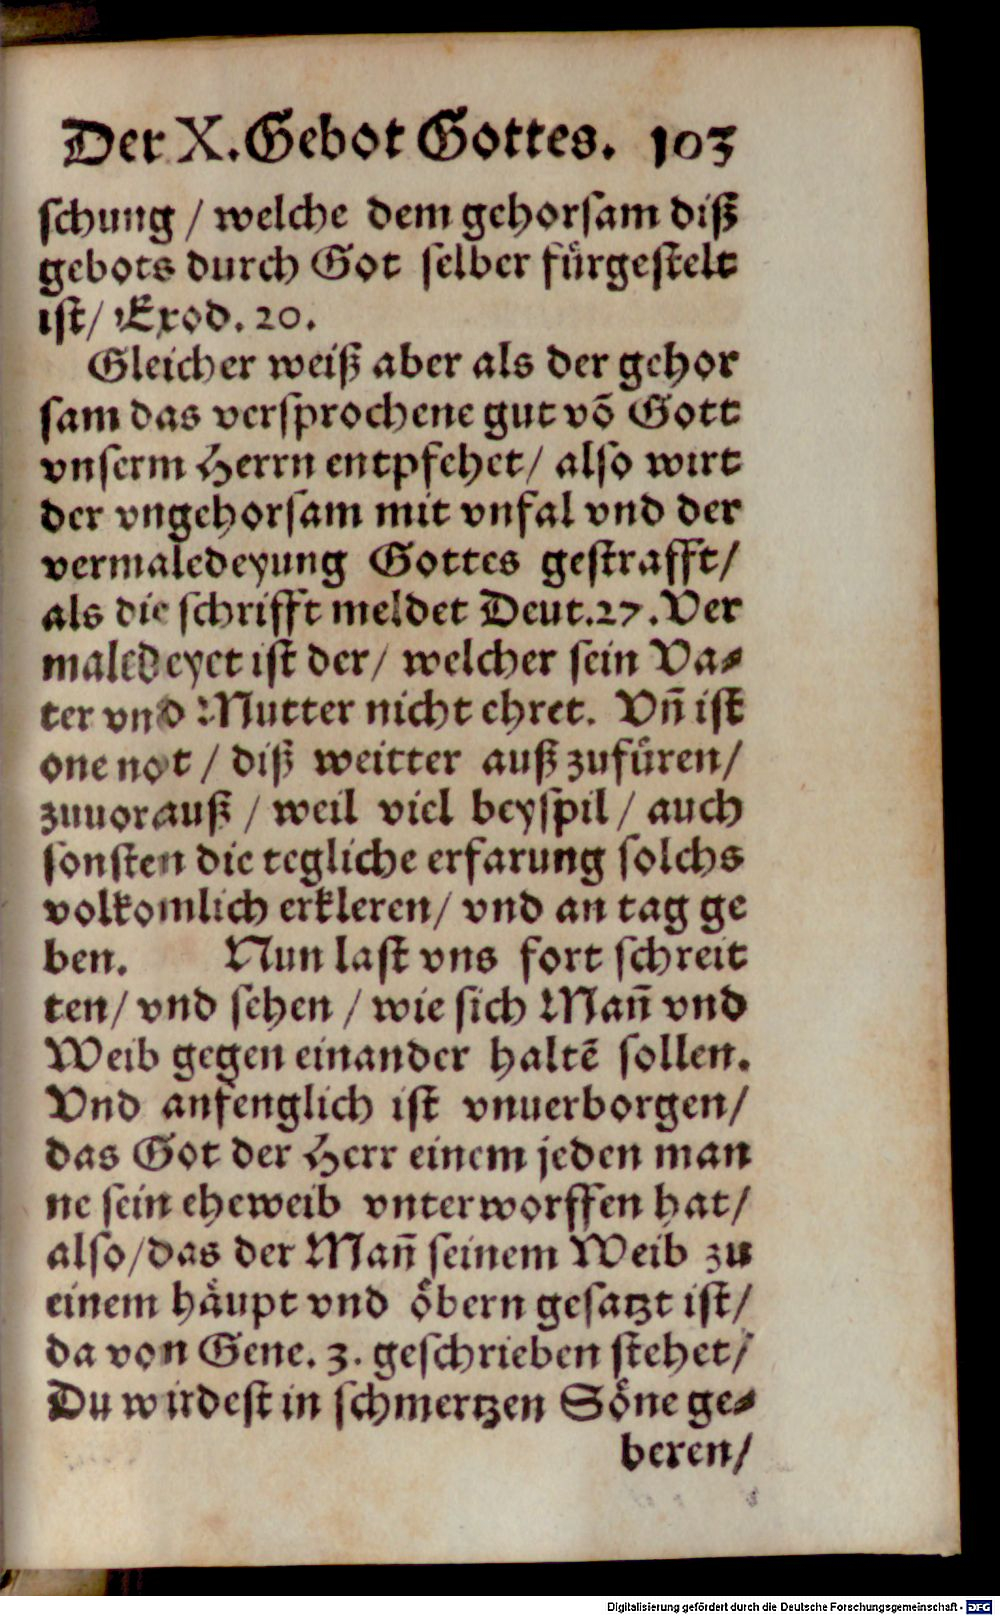 Der X. Gebot Gottes. 103
schung / welche dem gehorsam diß
gebots durch Got selber fuͤrgestelt
ist / Exod. 20.
Gleicher weiß aber als der gehor
sam das versprochene gut võ Gott
vnserm Herrn entpfehet / also wirt
der vngehorsam mit vnfal vnd der
vermaledeyung Gottes gestrafft /
als die schrifft meldet Deut. 27. Ver
maledeyet ist der / welcher sein Va⸗
ter vnd Mutter nicht ehret. Vn̄ ist
one not / diß weitter auß zufuͤren /
zuuorauß / weil viel beyspil / auch
sonsten die tegliche erfarung solchs
volkomlich erkleren / vnd an tag ge
ben. Nun last vns fort schreit
ten / vnd sehen / wie sich Man̄ vnd
Weib gegen einander haltē sollen.
Vnd anfenglich ist vnuerborgen /
das Got der Herr einem jeden man
ne sein eheweib vnterworffen hat /
also / das der Man̄ seinem Weib zu
einem haͤupt vnd oͤbern gesatzt ist /
da von Gene. 3. geschrieben stehet /
Du wirdest in schmertzen Soͤne ge⸗
beren /
Digitalisierung gefördert durch die Deutsche Forschungsgemeinschaft - DFG